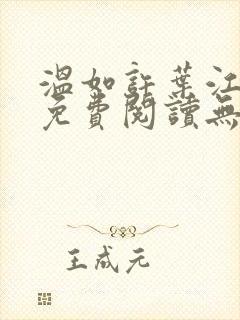 溫如許葉江
免費閱讀無
王成元